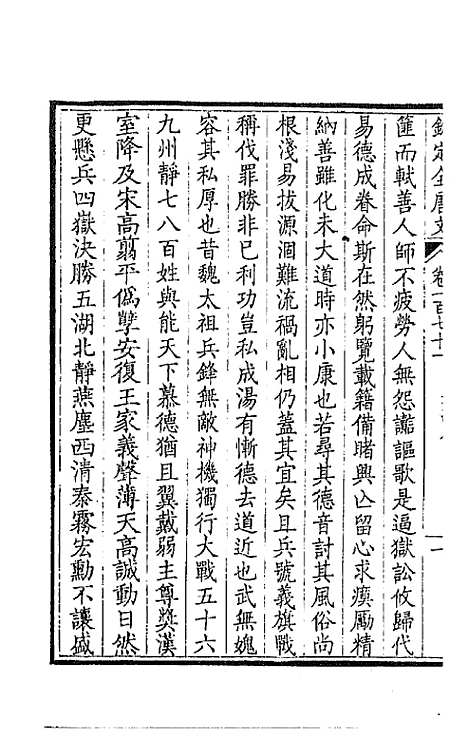 欽定全唐文 卷一百七十一
篚而軾善人師不疲勞人無怨讟謳歌是逼獄訟攸歸代
易德成眷命斯在然躬覽載籍備睹興亾留心求瘼勵精
納善雖化未大道時亦小康也若尋其德音討其風俗尚
根淺易拔源涸難流禍亂相仍蓋其宜矣且兵號義旗戰
稱伐罪勝非已利功豈私成湯有慚德去道近也武無媿
容其私厚也昔魏太祖兵鋒無敵神機獨行大戰五十六
九州靜七八百姓與能天下慕德猶且翼戴弱主尊奬漢
室降及宋高翦平僞孽安復王家義聲薄天高誠動日然
更懸兵四嶽決勝五湖北靜燕塵西清秦霧宏勳不讓盛